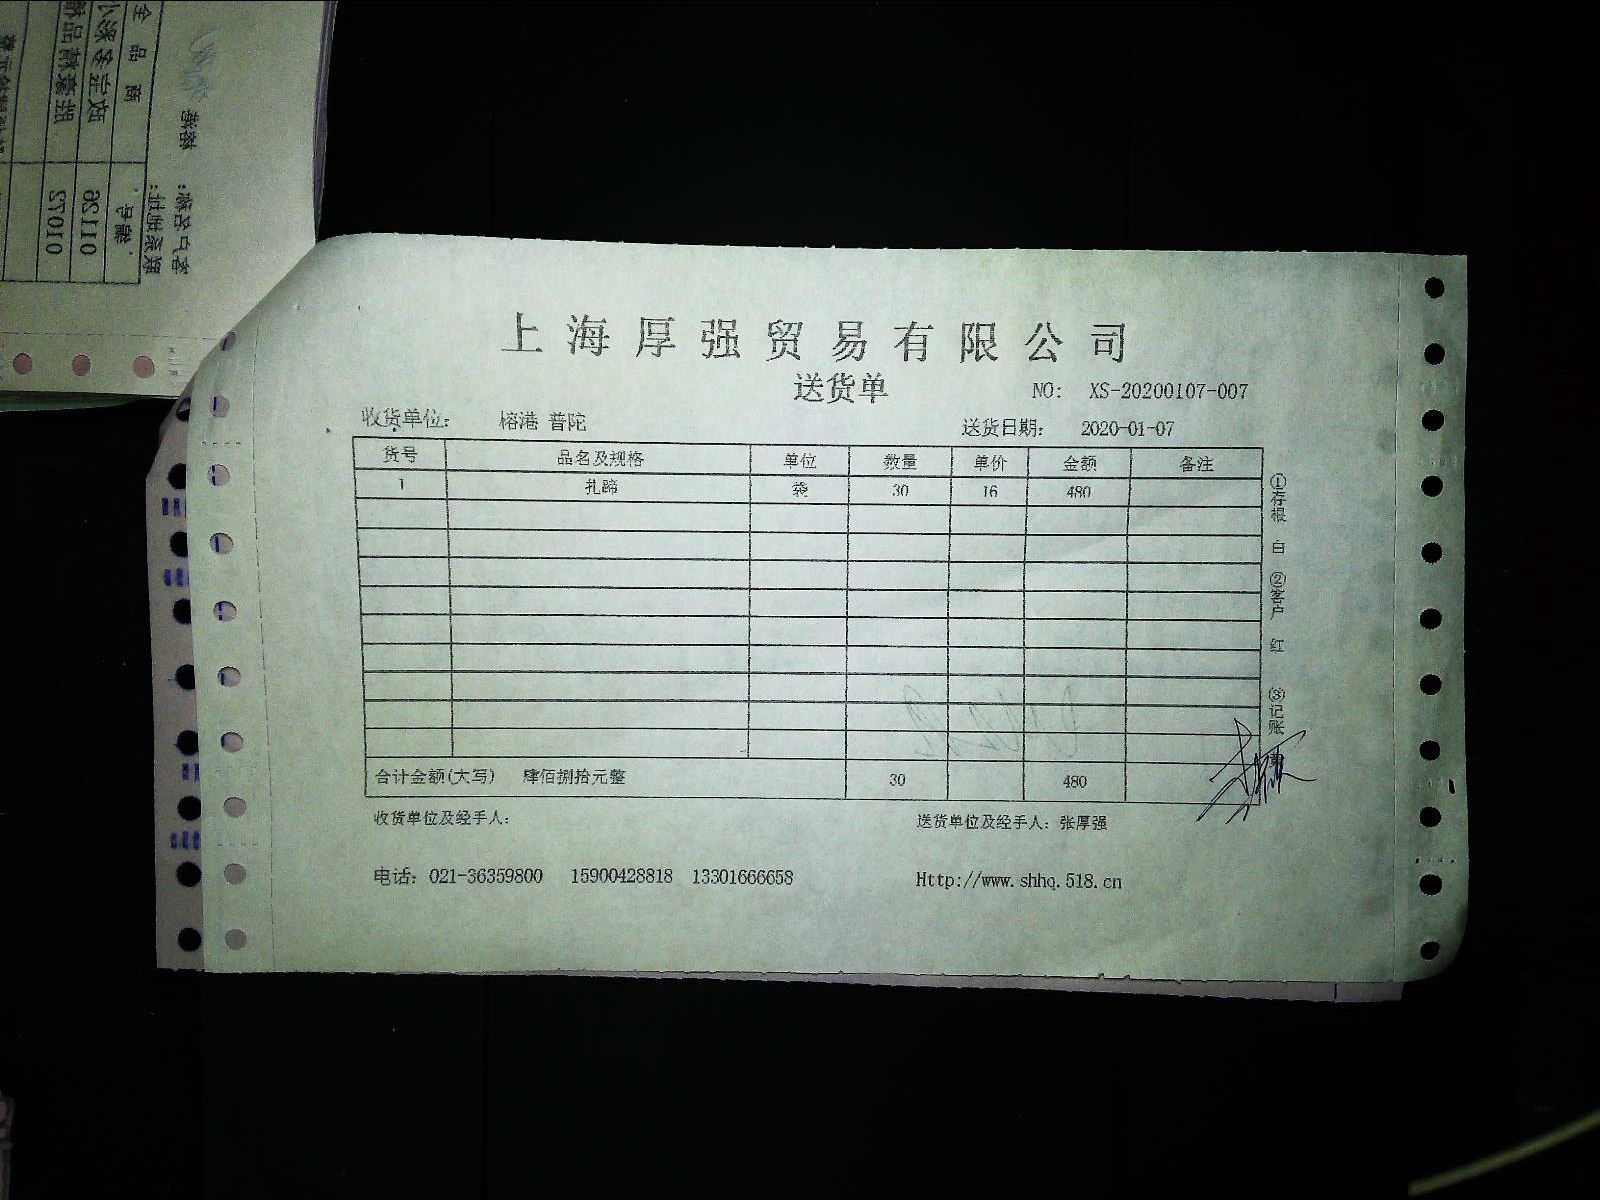 上海厚强贸易有限公司
送货单
NO: XS-20200107-007
收货单位: 榕港 普陀
送货日期: 2020-01-07
货号 品名及规格 单位 数量 单价 金额 备注
1 扎蹄 袋 30 16 480
合计金额(大写) 肆佰捌拾元整 30 480
收货单位及经手人:
送货单位及经手人: 张厚强
电话: 021-36359800 15900428818 13301666658
Http://www.shhq.518.cn
①存根 白 ②客户 红 ③记账